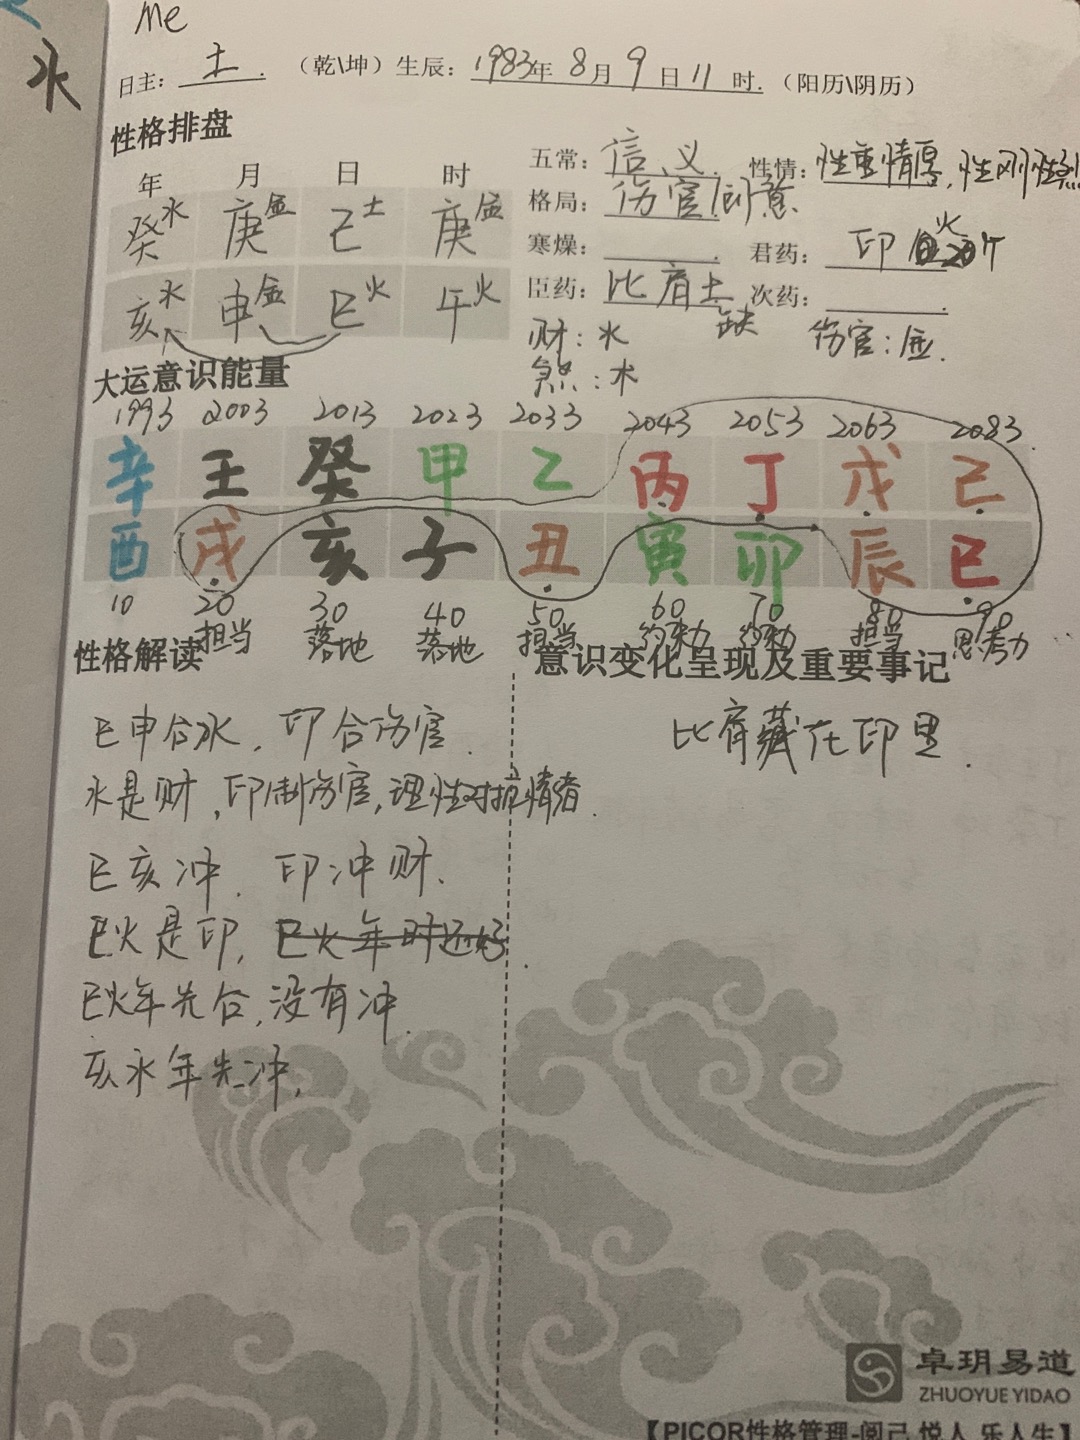 Me
水
日主：土. （乾\坤）生辰：1983年 8月 9日 11时.（阳历\阴历）
性格排盘
年 月 日 时
癸水 庚金 己土 庚金
亥水 申金 巳火 午火
五常：信义. 性情：性重情厚，性刚性烈
格局：伤官创意
寒燥： . 君药：印 火 20个
臣药：比肩土 缺 次药： .
财：水 伤官：金.
煞：木
大运意识能量
1993 2003 2013 2023 2033 2043 2053 2063 2083
辛 壬 癸 甲 乙 丙 丁 戊 己
酉 戌 亥 子 丑 寅 卯 辰 巳
10 20 30 40 50 60 70 80 90
担当 落地 落地 担当 约束力 约束力 担当 思考力
性格解读
巳申合水，印合伤官.
水是财，印制伤官，理性对抗情绪.
巳亥冲.印冲财.
巳火是印，巳火年时还好.
巳火年先合，没有冲.
亥水年先冲，
意识变化呈现及重要事记
比肩藏在印里.
卓玥易道
ZHUOYUE YIDAO
【PICOR性格管理-阅己 悦人 乐人生】